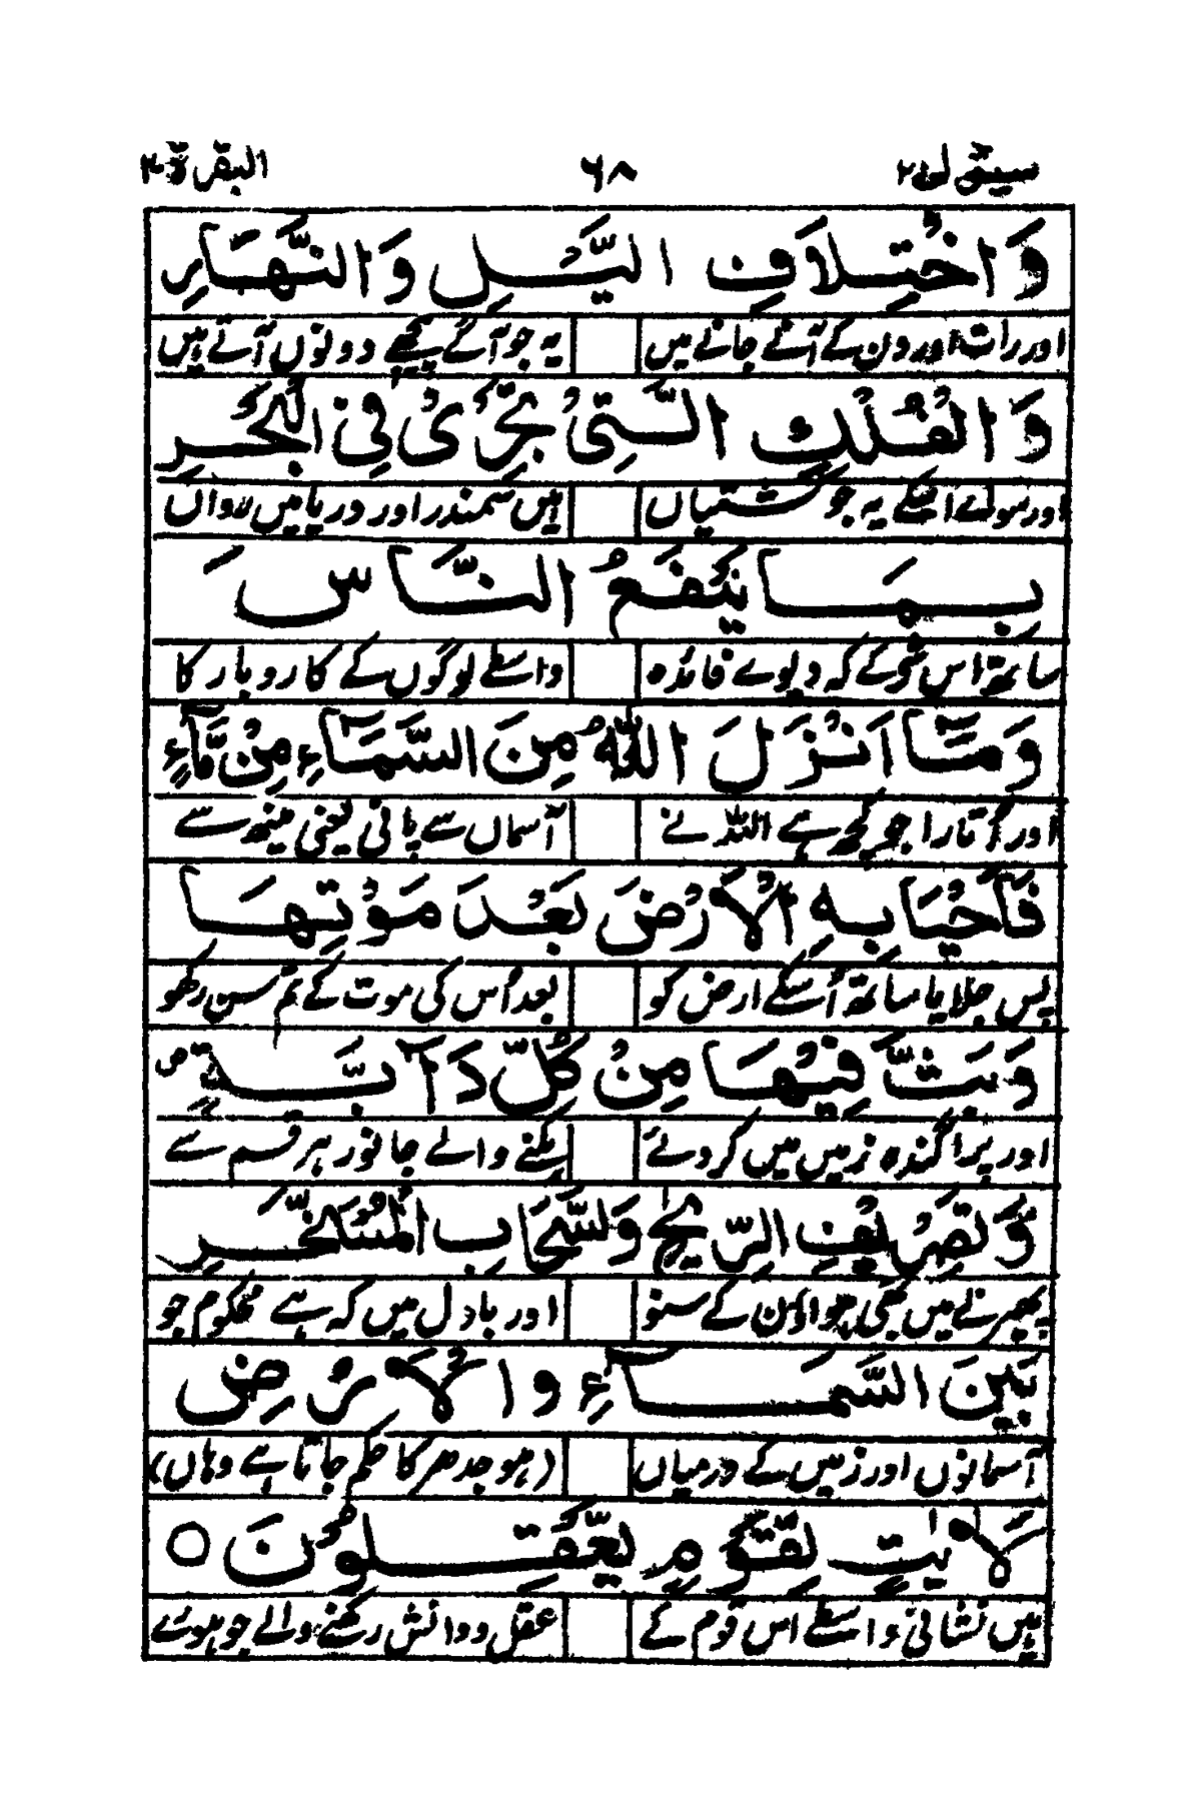 سیقول ٢ ٦٨ البقرة ٢
وَاخْتِلَافِ الَّيْلِ وَالنَّهَارِ
اور رات اور دن کے آنے جانے میں یہ جو آگے پیچھے دونوں آتے ہیں
وَالْفُلْكِ الَّتِیْ تَجْرِیْ فِی الْبَحْرِ
اور سوائے اسکے یہ جو کشتیاں ہیں سمندر اور دریا میں رواں
بِمَا يَنْفَعُ النَّاسَ
ساتھ اس شے کے کہ دیوے فائدہ واسطے لوگوں کے کاروبار کا
وَمَآ اَنْزَلَ اللّٰهُ مِنَ السَّمَآءِ مِنْ مَّآءٍ
اور اُتارا جو کچھ ہے اللہ نے آسماں سے پانی یعنی مینھ سے
فَاَحْيَا بِهِ الْاَرْضَ بَعْدَ مَوْتِهَا
پس جلایا ساتھ اُسکے ارض کو بعد اُس کی موت کے تم سن رکھو
وَبَثَّ فِيْهَا مِنْ كُلِّ دَآبَّةٍ ص
اور پراگندہ زمیں میں کردئے چلنے والے جانور ہر قسم سے
وَّتَصْرِيْفِ الرِّيٰحِ وَالسَّحَابِ الْمُسَخَّرِ
پھیرنے میں بھی ہواؤں کے سنو اور بادل میں کہ ہے محکوم جو
بَيْنَ السَّمَآءِ وَالْاَرْضِ
آسمانوں اور زمیں کے درمیاں (ہو جدھر کا حکم جاتا ہے وہاں)
لَاٰيٰتٍ لِّقَوْمٍ يَّعْقِلُوْنَ ○
ہیں نشانی واسطے اس قوم کے عقل و دانش رکھنے والے جو ہوئے